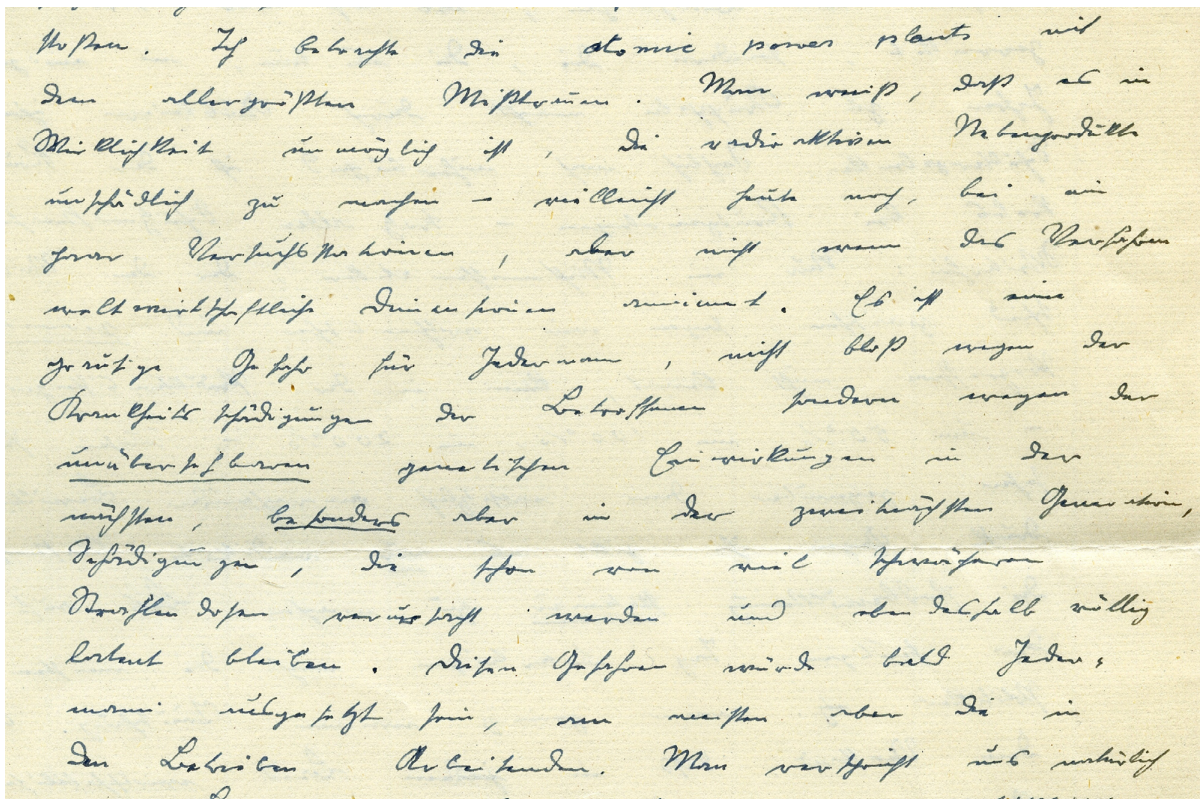 stoßen. Ich betrachte die atomic power plants mit
dem allergrößten Mißtrauen. Man weiß, daß es in
Wirklichkeit unmöglich ist, die radioaktiven Nebenprodukte
unschädlich zu machen – vielleicht heute noch, bei ein
paar Versuchsstationen, aber nicht wenn das Verfahren
weltwirtschaftliche Dimensionen annimmt. Es ist eine
grausige Gefahr für Jedermann, nicht bloß wegen der
Krankheitsschädigungen der Betroffenen sondern wegen der
unübersehbaren genetischen Einwirkungen in der
nächsten, besonders aber in der zweitnächsten Generation,
Schädigungen, die schon von viel schwächeren
Strahlendosen verursacht werden und eben deshalb völlig
latent bleiben. Diesen Gefahren würde bald Jeder-
mann ausgesetzt sein, am meisten aber die in
den Betrieben Arbeitenden. Man verspricht uns natürlich